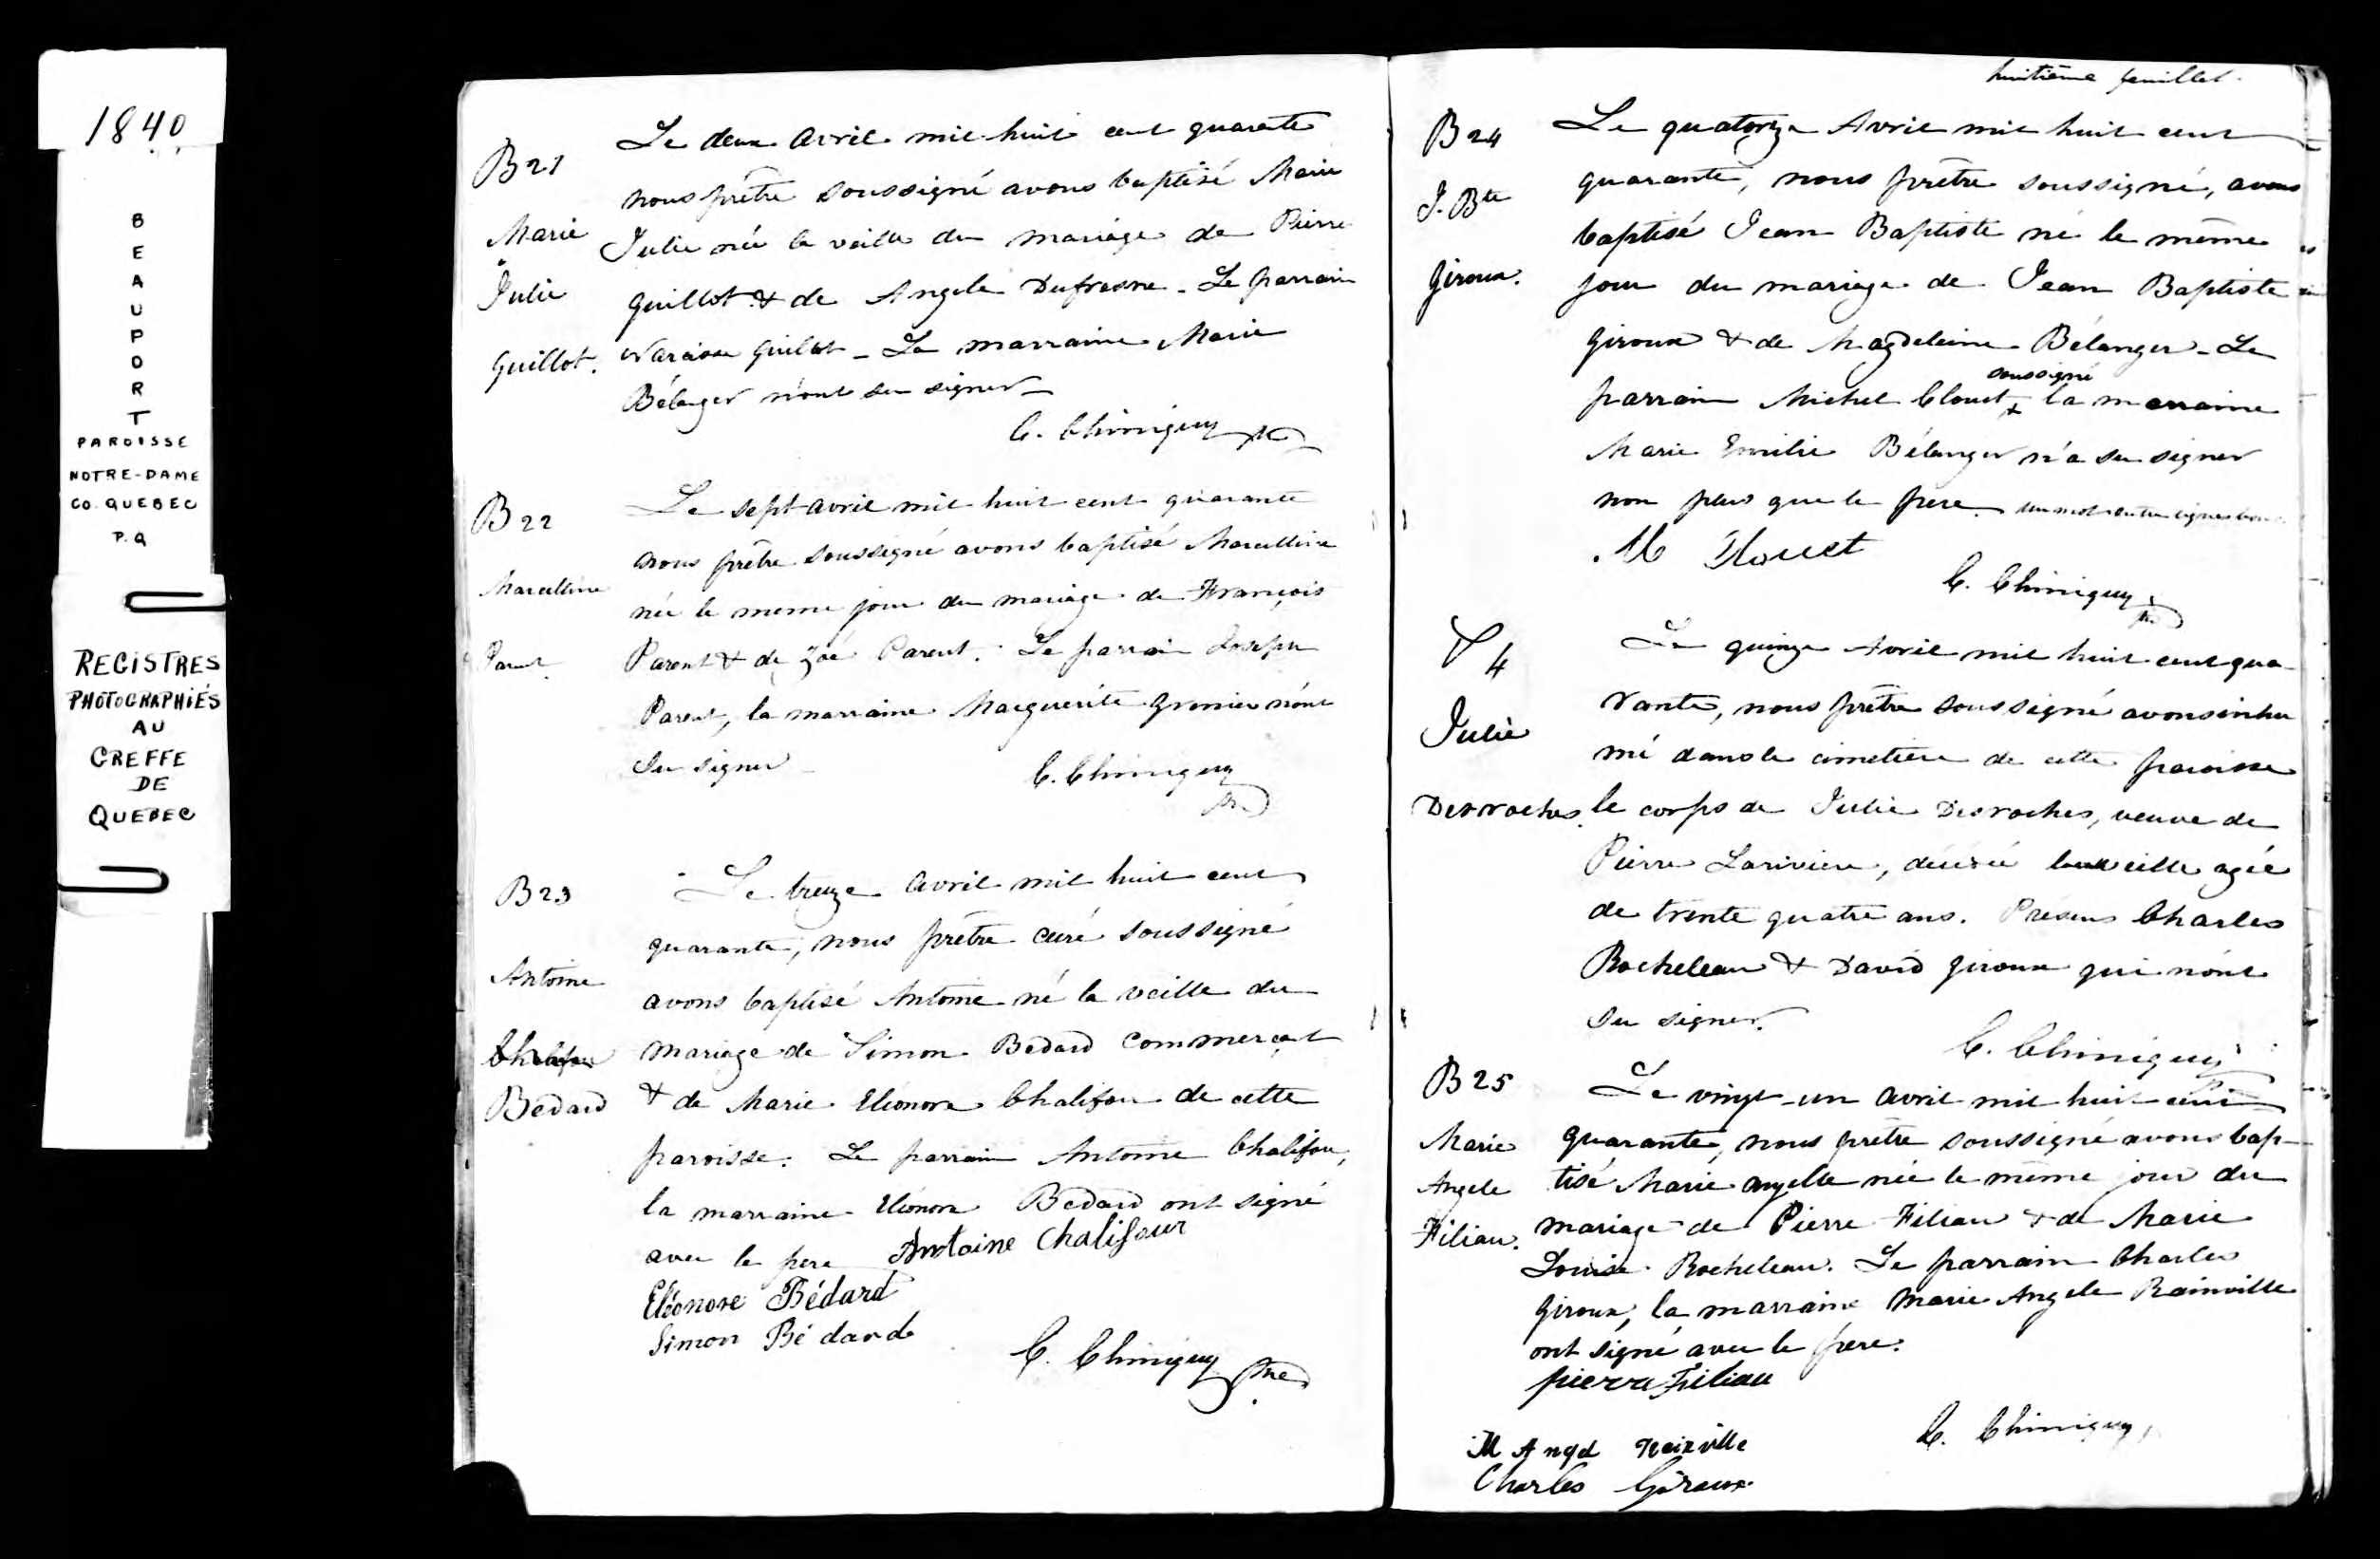 1840
B
E
A
U
P
O
R
T
PAROISSE
NOTRE-DAME
CO. QUEBEC
P.Q
REGISTRES
PHOTOGRAPHIÉS
AU
GREFFE
DE
QUEBEC
B21
Marie
Julie
Guillot.
Le deux Avril mil huit cent quarante
nous prêtre soussigné avons baptisé Marie
Julie née la veille du mariage de Pierre
Guillot & de Angele Dufresne - Le parrain
Narcisse Guillot - La marraine Marie
Bélanger n'ont su signer -
C. Chiniquy Ptre
B22
Marcelline
Parent
Le sept avril mil huit cent quarante
nous prêtre soussigné avons baptisé Marcelline
née le meme jour du mariage de François
Parent & de Zoé Parent. Le parrain Joseph
Parent, la marraine Marguerite Grenier n'ont
su signer
C. Chiniquy
Ptre
B23
Antoine
Chalifou
Bedard
Le treize avril mil huit cent
quarante, nous prêtre curé soussigné
avons baptisé Antoine né la veille du
mariage de Simon Bedard Commerçant
& de Marie Eléonore Chalifou de cette
paroisse. Le parrain Antoine Chalifou,
la marraine Eléonore Bedard ont signé
avec le pere Antoine Chalifour
Eléonore Bédard
Simon Bédard
C. Chiniquy Ptre
huitième feuillet.
B24
J. Bte
Giroux.
Le quatorze Avril mil huit cent
quarante, nous prêtre soussigné, avons
baptisé Jean Baptiste né le même
jour du mariage de Jean Baptiste
Giroux & de Magdeleine Bélanger - Le
soussigné
parrain Michel Clouet & la marraine
Marie Emilie Bélanger n'a su signer
non plus que le pere. un mot entre lignes bon.
M Clouet
C. Chiniquy
Ptre
S4
Julie
Desroches.
Le quinze Avril mil huit cent qua-
rante, nous prêtre soussigné avons inhu
mé dans le cimetière de cette paroisse
le corps de Julie Desroches, veuve de
Pierre Lariviere, décédée la veille agée
de trente quatre ans. Présens Charles
Rocheleau & David Giroux qui n'ont
su signer.
C. Chiniquy
B25
Marie
Angele
Filiau.
Le vingt-un avril mil huit cent
quarante, nous prêtre soussigné avons bap-
tisé Marie angelle née le même jour du
mariage de Pierre Filiau & de Marie
Louise Rocheleau. Le parrain Charles
Giroux, la marraine Marie Angele Rainville
ont signé avec le pere.
pierre Filiau
C. Chiniquy,
M Angel Reinville
Charles Giroux